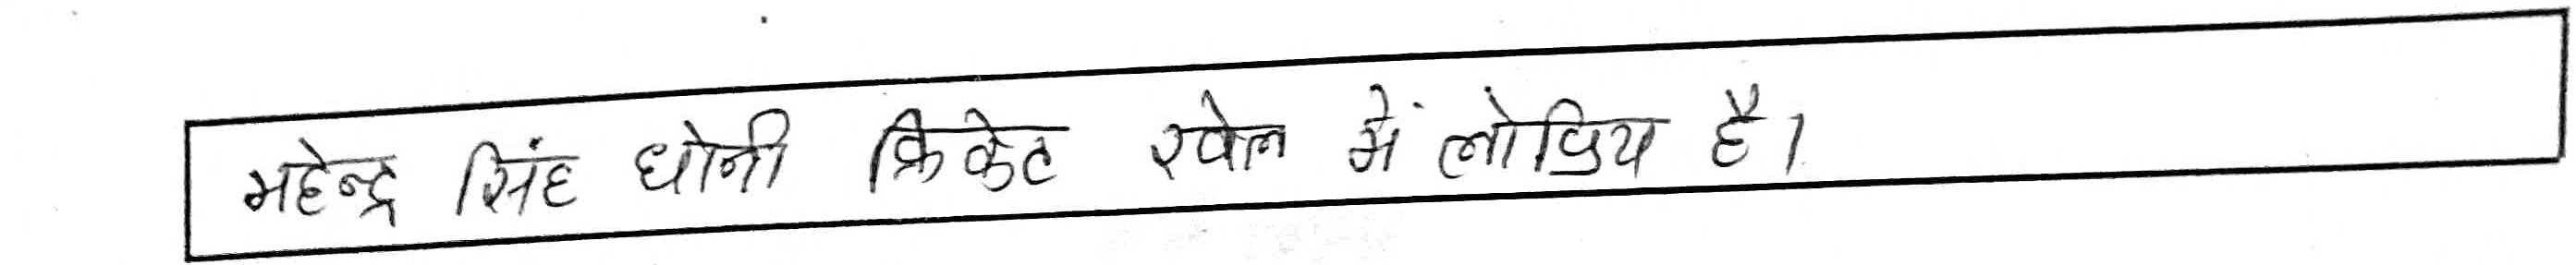 महेन्द्र सिंह धोनी क्रिकेट खेल में लोप्रिय है।